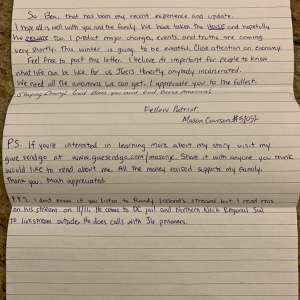 So Ben, that has been my recent experience and update.
I hope all is well with you and the family. We have taken the HOUSE and hopefully
the SENATE too. I predict major changes, events, and truths are coming
very shortly. This winter is going to be eventful. Close attention on economy.
Feel free to post this letter. I believe it's important for people to know
what life can be like for us J6ers. Honestly anybody incarcerated.
We need all the awareness we can get. I appreciate you to the fullest.
Stay strong! God Bless you and God Bless America!
Fellow Patriot,
Mason Courson
PS. If you're interested in learning more about my story visit my
give send go at www.givesendgo.com/masonjc. Share it with anyone you think
would like to read about me. All the money raised supports my family.
Thank you. Much appreciated.
P.P.S. I don't know if you listen to Randy Ireland's streams but I read mine
on his stream on 11/11. He comes to DC jail and Northern Neck Regional Jail
to livestream outside. He does calls with J6 prisoners.